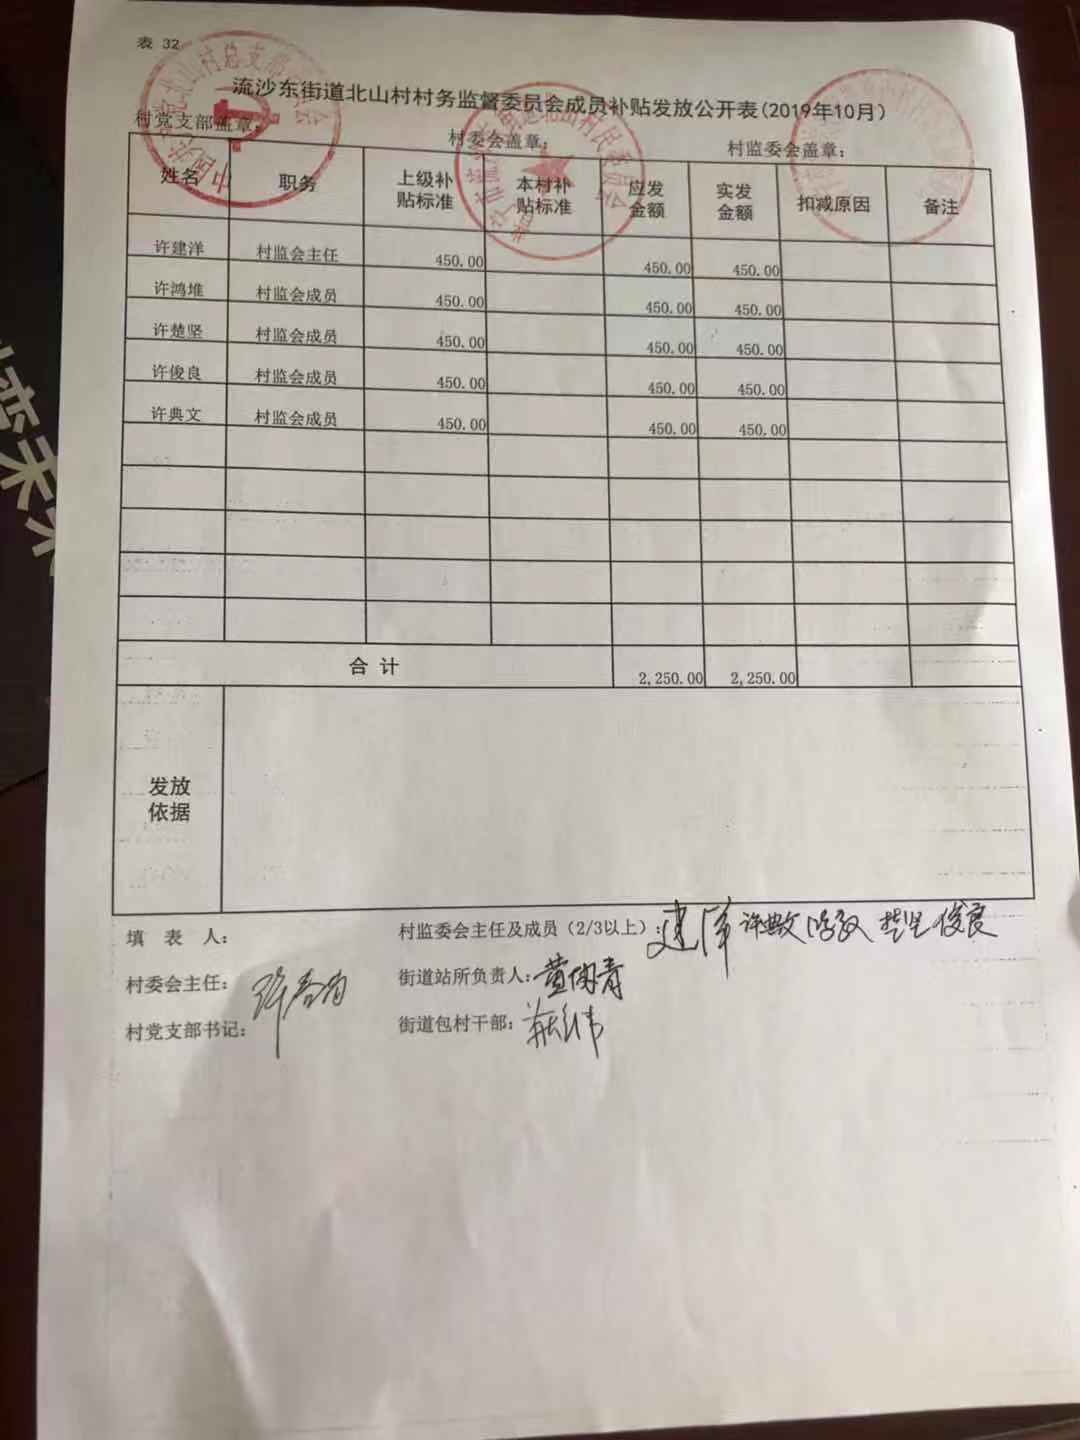 表 32
流沙东街道北山村村务监督委员会成员补贴发放公开表(2019年10月)
村党支部盖章: 村委会盖章: 村监委会盖章:
姓名 职务 上级补贴标准 本村补贴标准 应发金额 实发金额 扣减原因 备注
许建洋 村监会主任 450.00 450.00 450.00
许鸿堆 村监会成员 450.00 450.00 450.00
许楚坚 村监会成员 450.00 450.00 450.00
许俊良 村监会成员 450.00 450.00 450.00
许典文 村监会成员 450.00 450.00 450.00
合 计 2,250.00 2,250.00
发放依据
填 表 人: 村监委会主任及成员(2/3以上): 建洋 许典文 楚坚 俊良
村委会主任: 街道站所负责人:
村党支部书记: 街道包村干部: